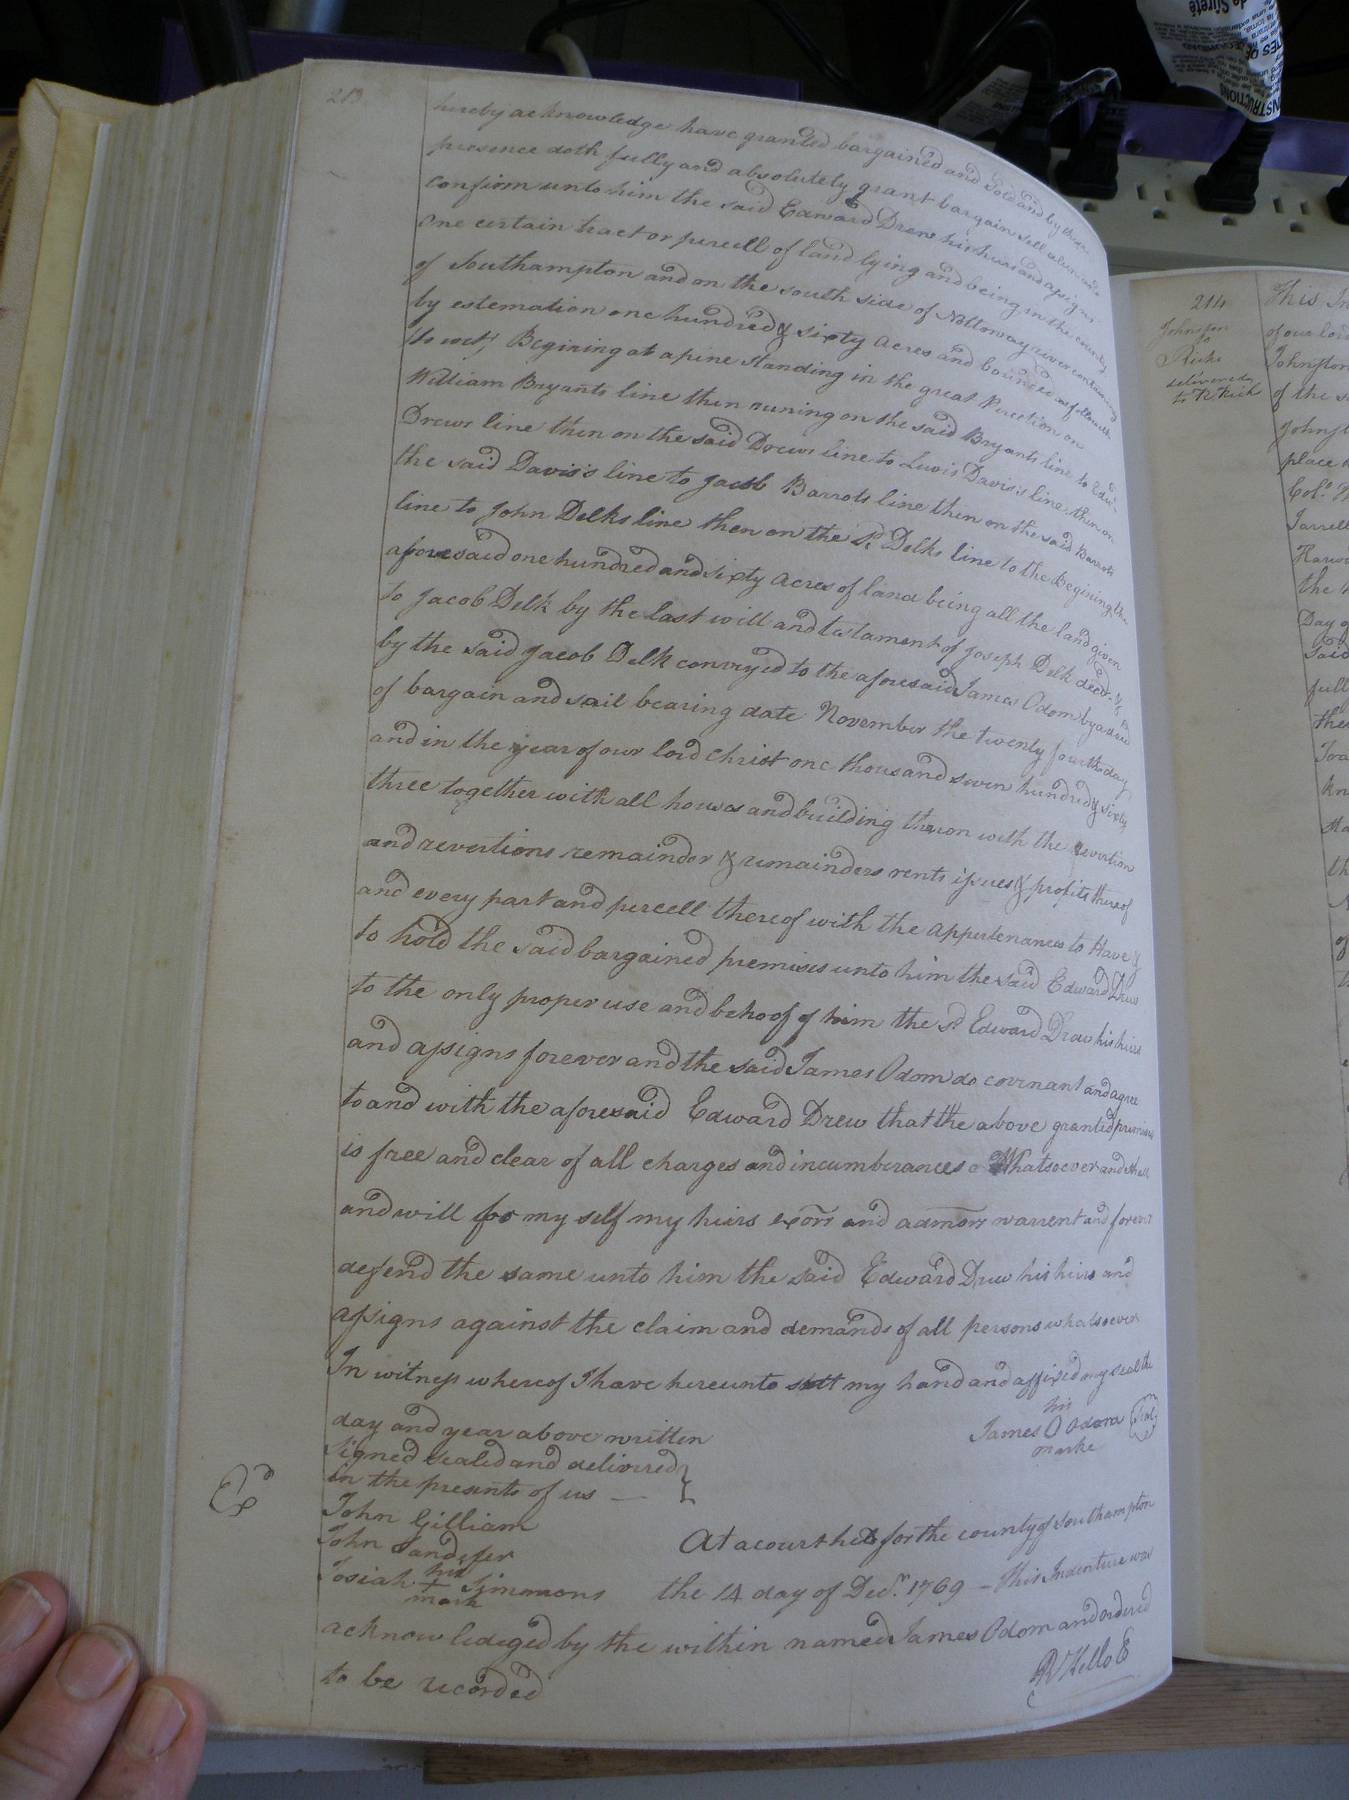 213
hereby acknowledge have granted bargained and Sold and by these
presence doth fully and absolutely grant bargain sell alien and
confirm unto him the said Edward Drew his heirs and assigns
One certain tract or percell of land lying and being in the county
of Southampton and on the south side of Nottoway river containing
by estemation one hundred & sixty Acres and bounded as followeth
(to wit) Begining at a pine standing in the great Percotion on
William Bryants line then runing on the said Bryants line to Edwd
Drews line then on the said Drews line to Lewis Davis's line then on
the said Davis's line to Jacob Barrots line then on the said Barrots
line to John Delks line then on the sd Delks line to the Begining the
aforesaid one hundred and sixty Acres of land being all the land given
to Jacob Delk by the last will and testament of Joseph Delk decd &
by the said Jacob Delk conveyed to the aforesaid James Odom by a deed
of bargain and sail bearing date November the twenty fourth day
and in the year of our lord Christ one thousand seven hundred & sixty
three together with all houses and building thereon with the revertion
and revertions remainder & remainders rents issues & profits thereof
and every part and percell thereof with the Appertenances to Have &
to hold the said bargained premises unto him the said Edward Drew
to the only proper use and behoof of him the sd Edward Drew his heirs
and assigns forever and the said James Odom do covenant and agree
to and with the aforesaid Edward Drew that the above granted premises
is free and clear of all charges and incumberances Whatsoever and shall
and will for my self my heirs exors and admors warrent and forever
defend the same unto him the said Edward Drew his heirs and
assigns against the claim and demands of all persons whatsoever
In witness whereof I have hereunto sett my hand and affixed my seal the
day and year above written
his
James O Odom Seal
marke
Signed Sealed and delivered
in the presents of us
John Gilliam
John Sandefer
his
Josiah + Simmons
mark
At a court held for the county of Southampton
the 14 day of Decr. 1769 - this Indenture was
acknowledged by the within named James Odom and ordered
to be recorded
R Kello
214
Johnston
to
Ricks
delivered
to R Rick
This In
of our lord
Johnston
of the s
Johnst
place
Colo.
Jarrell
Harw
the
Day o
Said
full
the
Tra
kn
Ma
th
of
INSTRUCTIONS
de Sûreté